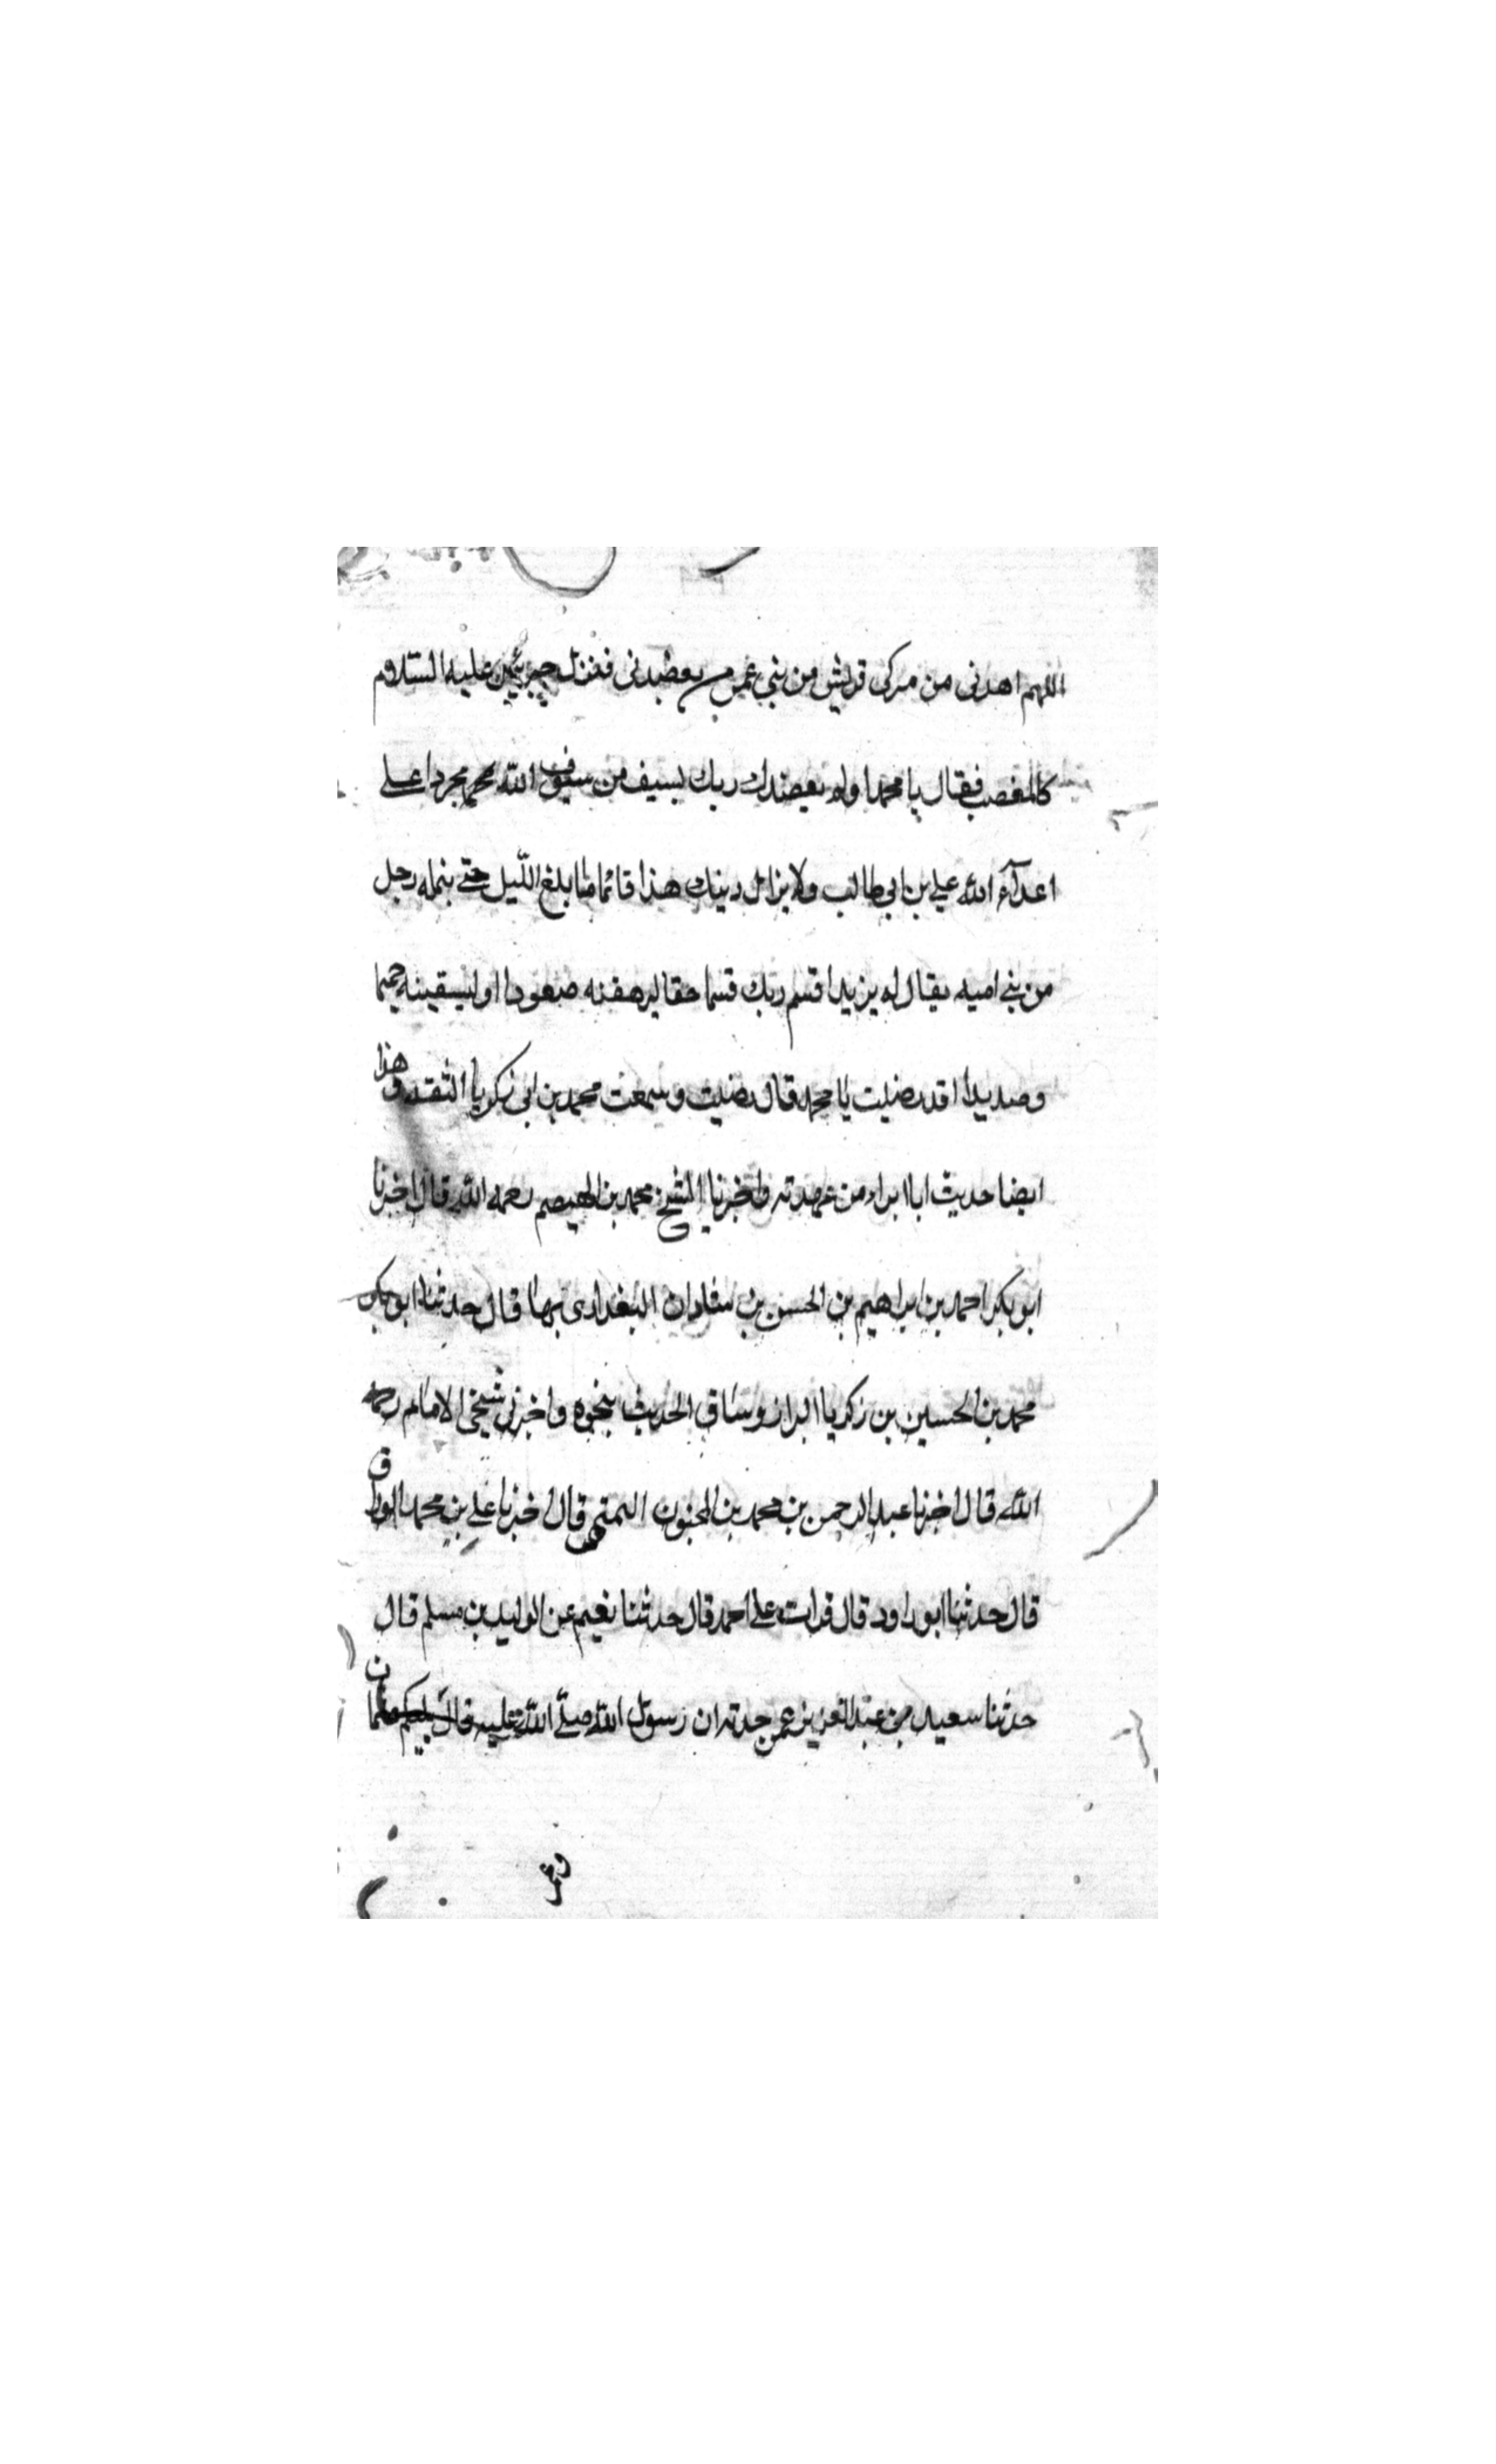 اللهم اهدنى من مركى قريش من بنى عمى من يعضدنى فنزل جبرئيل عليه السلام
كالمغضب فقال يا محمد اولم يعضدك ربك بسيف من سيوف الله محمد مجردا على
اعدآء الله على بن ابى طالب ولا يزال دينك هذا قائما ما بلغ الليل حتى يثلمه رجل
من بنى اميه يقال له يزيد اقسم ربك قسما حقا ليرهقنه صعودا او ليسقينه حميما
وصديدا اقد رضيت يا محمد قال رضيت وسمعت محمد بن ابى زكريا الثقه وهذا
ايضا حديث ابا ابراء من عهدته واخبرنا الشيخ محمد بن الهيصم رحمه الله قال اخبرنا
ابو بكر احمد بن ابراهيم بن الحسن بن شاذان البغدادى بها قال حدثنا ابو بكر
محمد بن الحسين بن زكريا البراز وساق الحديث بنحوه واخبرنى شيخى الامام رحمه
الله قال اخبرنا عبد الرحمن بن محمد بن المحبوب التميمى قال اخبرنا على بن محمد الوراق
قال حدثنا ابو داود قال قرات على احمد قال حدثنا نعيم عن الوليد بن مسلم قال
حدثنا سعيد بن عبد العزيز عمن حدثه ان رسول الله صلى الله عليه قال يليكم عثمان